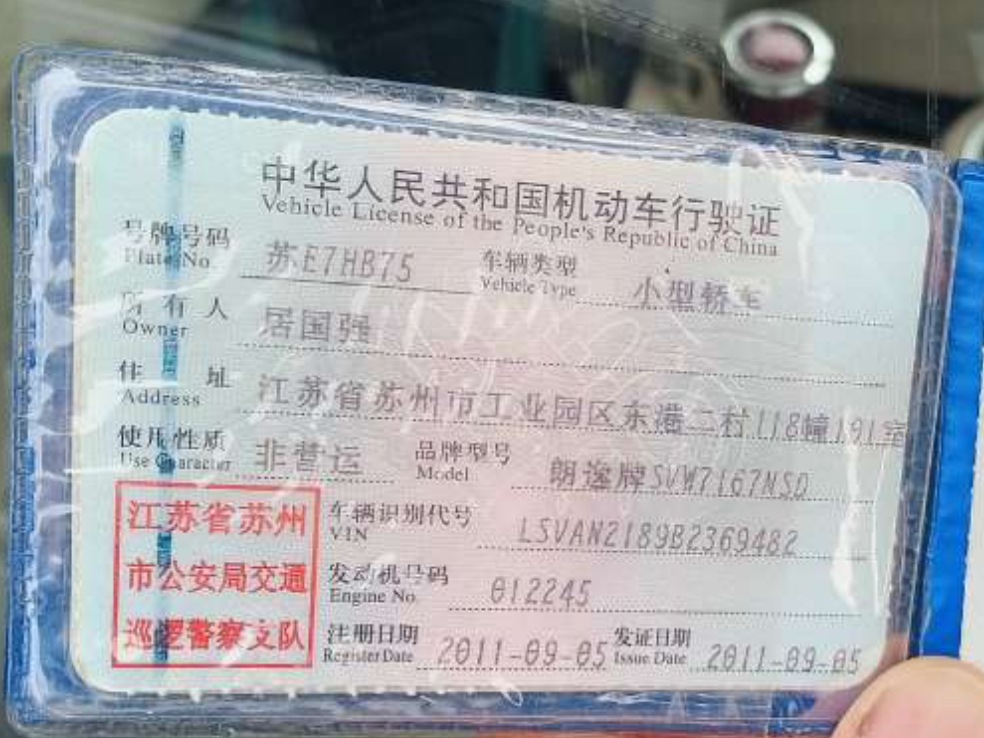 中华人民共和国机动车行驶证
Vehicle License of the People's Republic of China
号牌号码 苏E7HB75 车辆类型 小型轿车
Plate No. Vehicle Type
所有人 居国强
Owner
住址 江苏省苏州市工业园区东港二村118幢191室
Address
使用性质 非营运 品牌型号 朗逸牌SVW7167NSD
Use Character Model
江苏省苏州
市公安局交通
巡逻警察支队
车辆识别代号 LSVAN2189B2369482
VIN
发动机号码 012245
Engine No.
注册日期 2011-09-05 发证日期 2011-09-05
Register Date Issue Date